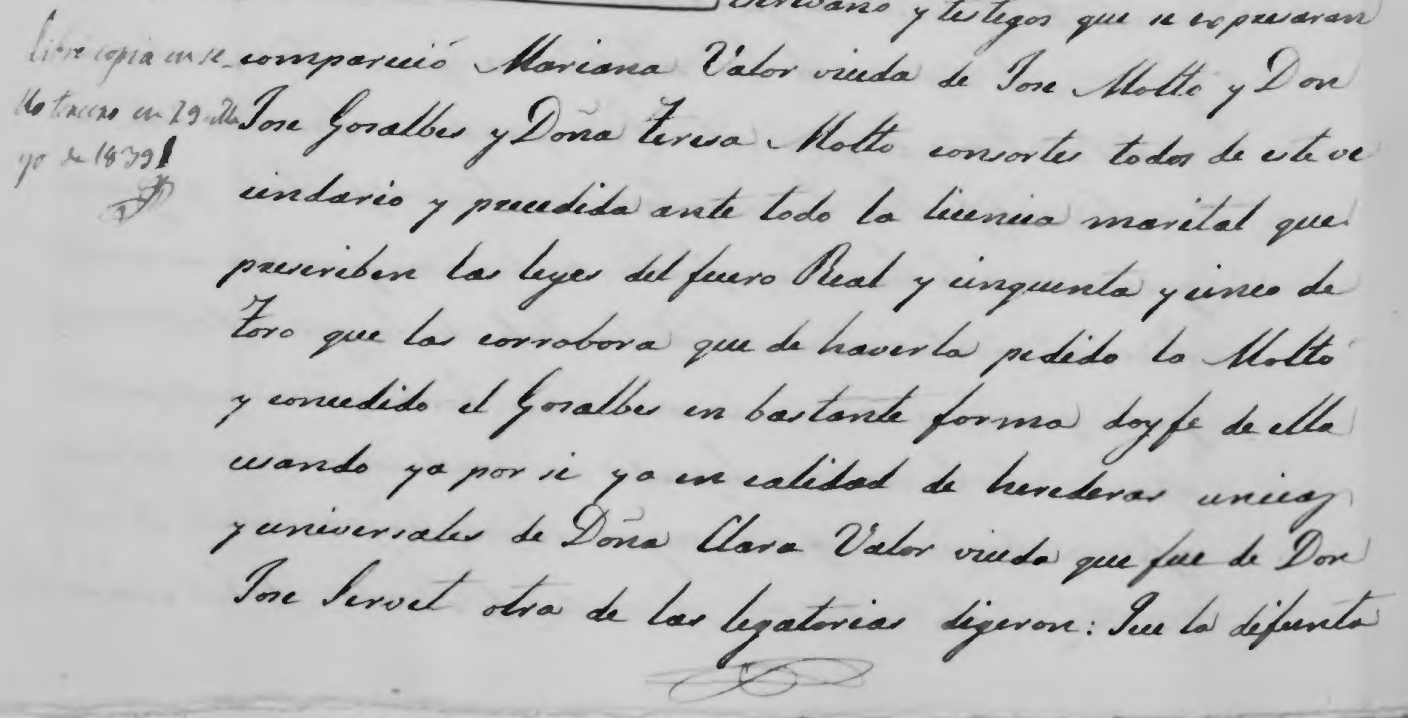 escribano y testigos que se expresaran
compareció Mariana Valor viuda de Jose Molto y Don
Jose Gosalbes y Doña Teresa Molto consortes todos de este ve
cindario y precedida ante todo la licencia marital que
prescriben las leyes del fuero Real y cinquenta y cinco de
Toro que las corrobora que de haverla pedido la Moltó
y concedido el Gosalbes en bastante forma doy fe de ella
usando ya por si ya en calidad de herederas unicas
y universales de Doña Clara Valor viuda que fue de Don
Jose Servet otra de las legatarias digeron: Que la difunta
Libre copia en se
llo tercero en 29 Ma
yo de 1839